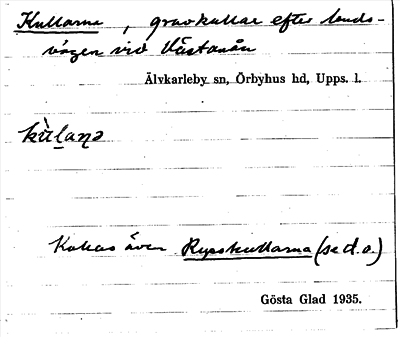 Kullarna, gravkullar efter lands-
vägen vid Västanån
Älvkarleby sn, Örbyhus hd, Upps. l.
Kallas även Rysskullarna (se d.o.)
Gösta Glad 1935.